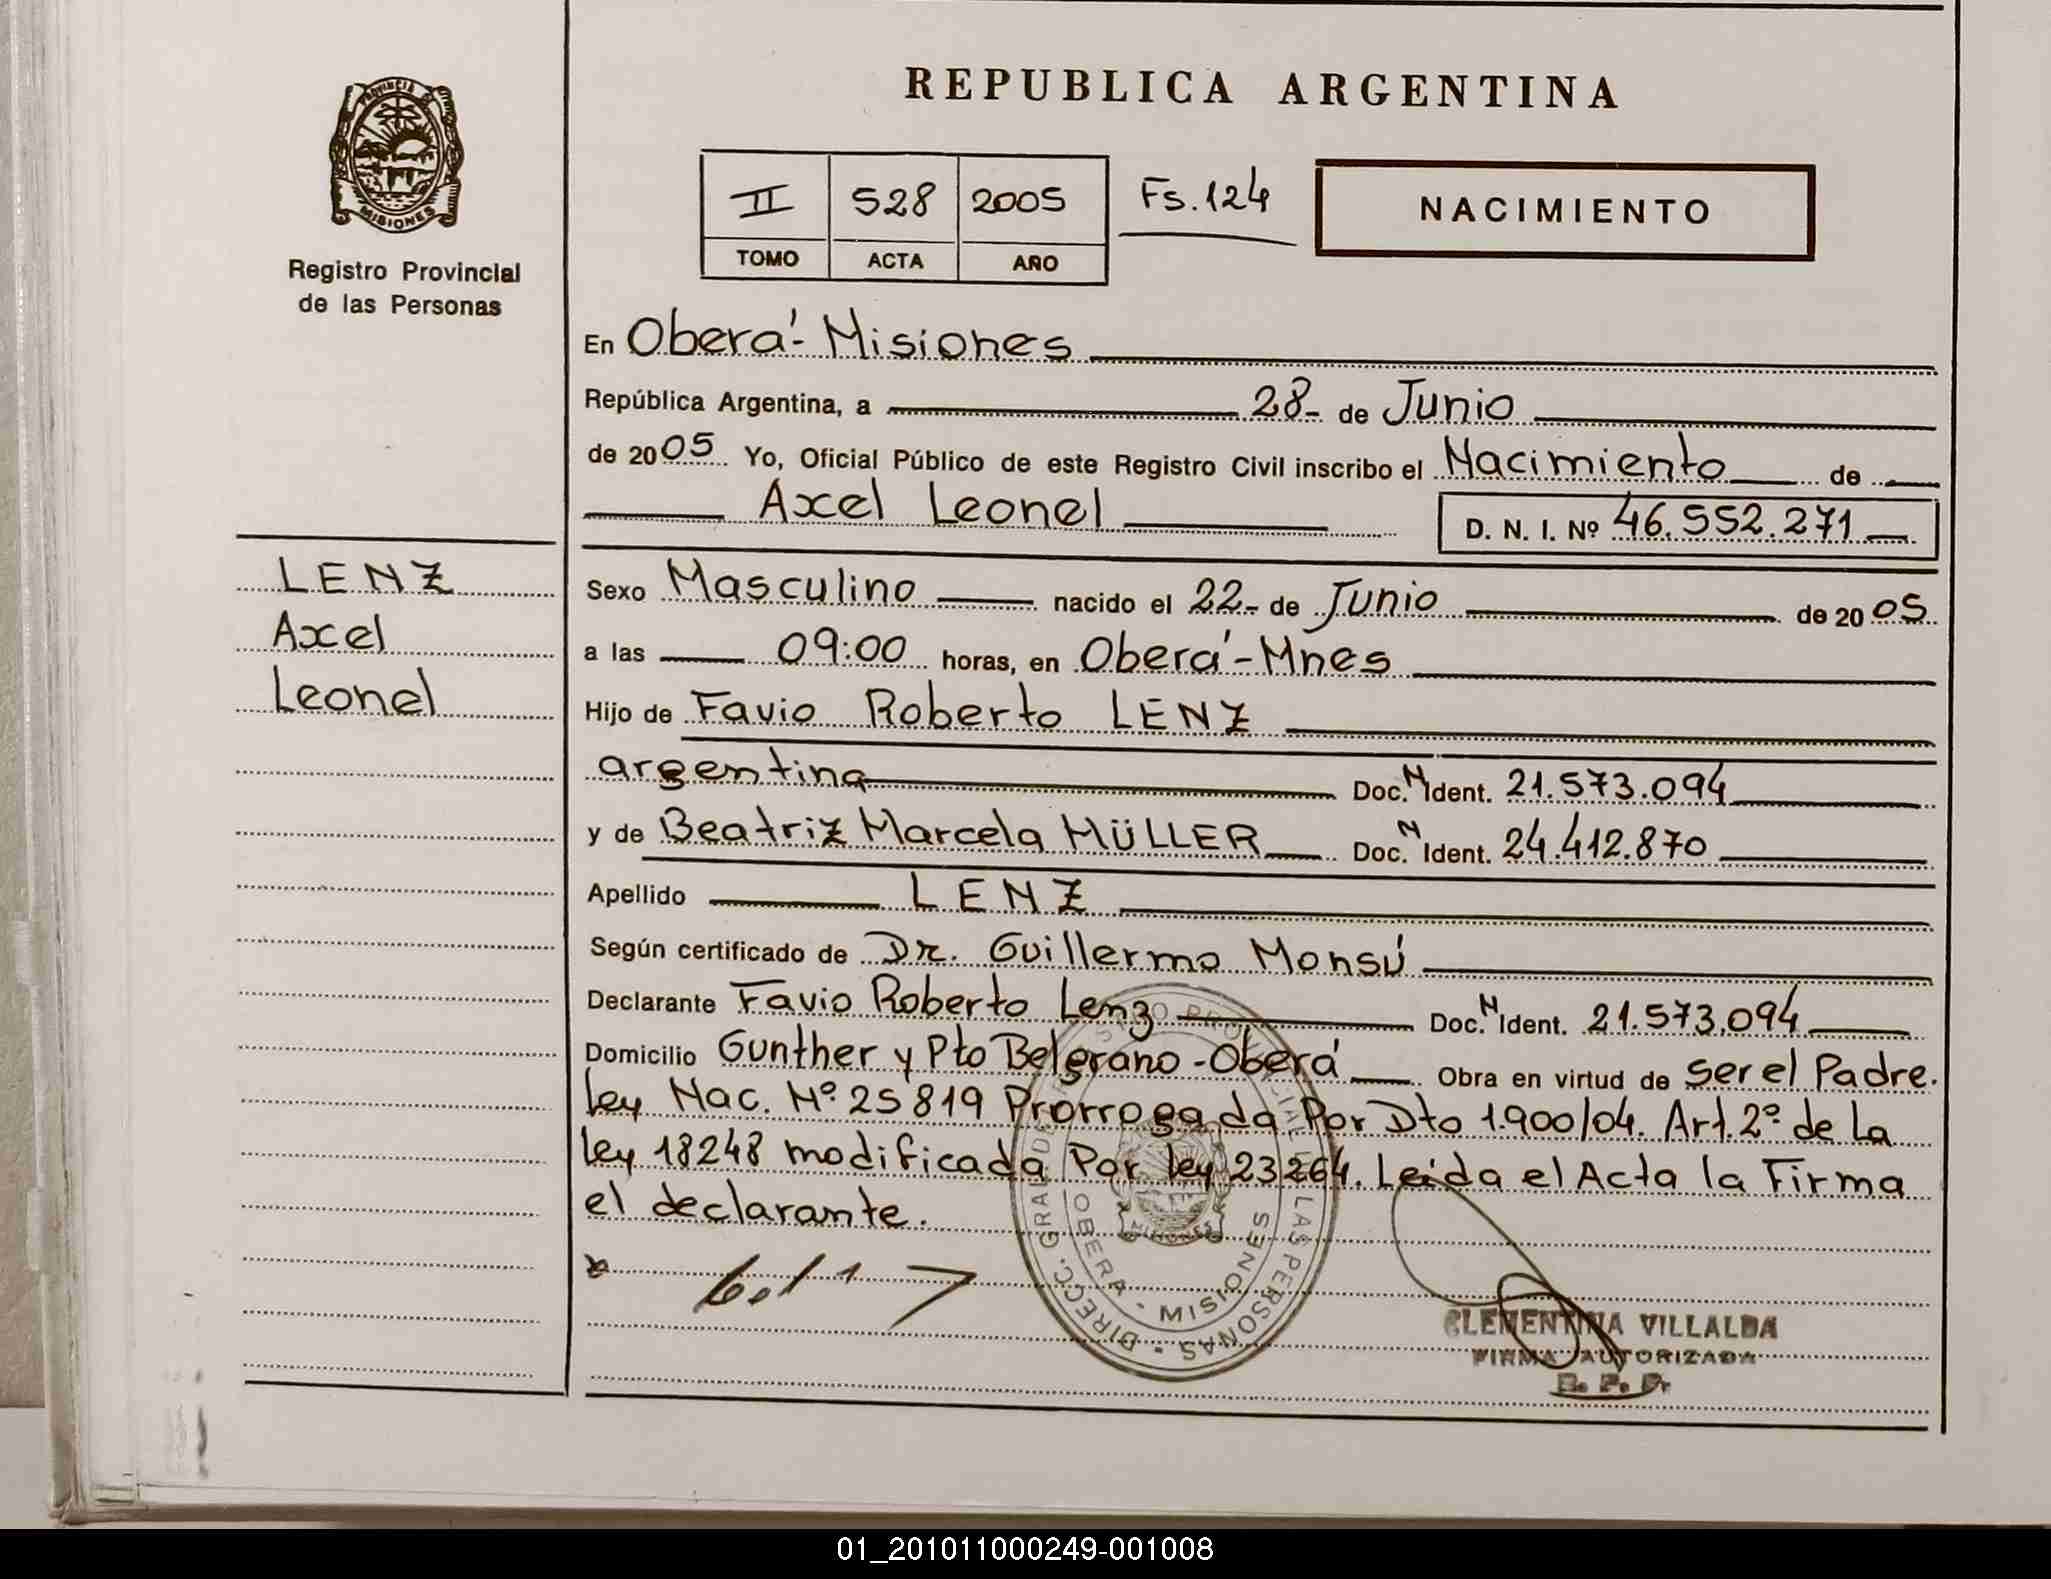 REPUBLICA ARGENTINA
PROVINCIA DE
MISIONES
Registro Provincial
de las Personas
II 528 2005 Fs. 124
TOMO ACTA AÑO
NACIMIENTO
En Oberá - Misiones
República Argentina, a 28 - de Junio
de 2005 Yo, Oficial Público de este Registro Civil inscribo el Nacimiento de
Axel Leonel D. N. I. Nº 46.552.271
LENZ
Axel
Leonel
Sexo Masculino nacido el 22 - de Junio de 2005
a las 09:00 horas, en Oberá - Mnes
Hijo de Favio Roberto LENZ
argentina Doc. N Ident. 21.573.094
y de Beatriz Marcela MÜLLER Doc. N Ident. 24.412.870
Apellido LENZ
Según certificado de Dr. Guillermo Monsú
Declarante Favio Roberto Lenz Doc. N Ident. 21.573.094
Domicilio Gunther y Pto Belgrano - Oberá Obra en virtud de ser el Padre.
Ley Nac. Nº 25819 Prorrogada Por Dto 1.900/04. Art. 2º de La
Ley 18248 modificada Por Ley 23264. Leida el Acta la Firma
el declarante.
DIRECC. GRAL. DE REGISTRO PROVINCIAL DE LAS PERSONAS
OBERA - MISIONES
CLEMENTINA VILLALBA
FIRMA AUTORIZADA
R. P. P.
01_201011000249-001008